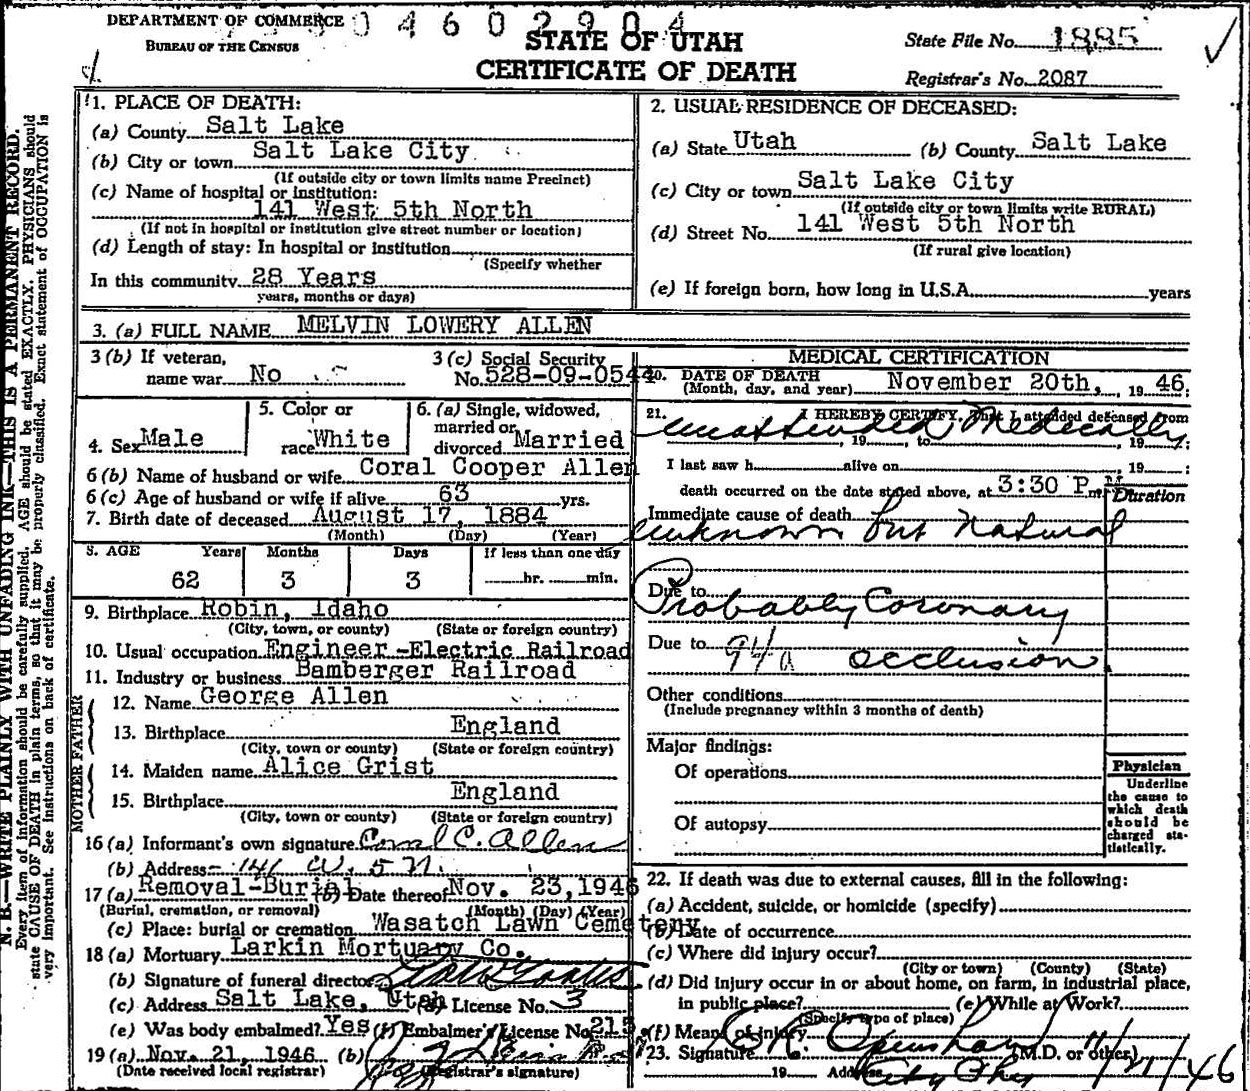 DEPARTMENT OF COMMERCE
BUREAU OF THE CENSUS
0 4 6 0 2 9 0 4
STATE OF UTAH
CERTIFICATE OF DEATH
State File No. 1885
Registrar's No. 2087
N. B.—WRITE PLAINLY WITH UNFADING INK—THIS IS A PERMANENT RECORD.
Every item of information should be carefully supplied. AGE should be stated EXACTLY. PHYSICIANS should
state CAUSE OF DEATH in plain terms, so that it may be properly classified. Exact statement of OCCUPATION is
very important. See instructions on back of certificate.
1. PLACE OF DEATH:
(a) County Salt Lake
(b) City or town Salt Lake City
(If outside city or town limits name Precinct)
(c) Name of hospital or institution:
141 West 5th North
(If not in hospital or institution give street number or location)
(d) Length of stay: In hospital or institution
(Specify whether
In this community 28 Years
years, months or days)
2. USUAL RESIDENCE OF DECEASED:
(a) State Utah (b) County Salt Lake
(c) City or town Salt Lake City
(If outside city or town limits write RURAL)
(d) Street No. 141 West 5th North
(If rural give location)
(e) If foreign born, how long in U.S.A. years
3. (a) FULL NAME MELVIN LOWERY ALLEN
3 (b) If veteran, name war No
3 (c) Social Security No. 528-09-0544
4. Sex Male
5. Color or race White
6. (a) Single, widowed, married or divorced Married
6 (b) Name of husband or wife Coral Cooper Allen
6 (c) Age of husband or wife if alive 63 yrs.
7. Birth date of deceased August 17, 1884
(Month) (Day) (Year)
8. AGE Years Months Days If less than one day
62 3 3 hr. min.
9. Birthplace Robin, Idaho
(City, town, or county) (State or foreign country)
10. Usual occupation Engineer-Electric Railroad
11. Industry or business Bamberger Railroad
FATHER
12. Name George Allen
13. Birthplace England
(City, town or county) (State or foreign country)
MOTHER
14. Maiden name Alice Grist
15. Birthplace England
(City, town or county) (State or foreign country)
16 (a) Informant's own signature Coral C. Allen
(b) Address 141 W. 5 N.
17 (a) Removal-Burial (b) Date thereof Nov. 23, 1946
(Burial, cremation, or removal) (Month) (Day) (Year)
(c) Place: burial or cremation Wasatch Lawn Cemetery
18 (a) Mortuary Larkin Mortuary Co.
(b) Signature of funeral director
(c) Address Salt Lake, Utah (d) License No. 3
(e) Was body embalmed? Yes (f) Embalmer's License No. 215
19 (a) Nov. 21, 1946 (b)
(Date received local registrar) (Registrar's signature)
MEDICAL CERTIFICATION
20. DATE OF DEATH
(Month, day, and year) November 20th, 19 46.
21. I HEREBY CERTIFY, That I attended deceased from
Unattended Medically
19 , to 19 ;
I last saw h alive on , 19 ;
death occurred on the date stated above, at 3:30 P.m.
Duration
Immediate cause of death
unknown but natural
Due to
Probably Coronary
Due to 94a occlusion
Other conditions
(Include pregnancy within 3 months of death)
Major findings:
Of operations
Of autopsy
Physician
Underline
the cause to
which death
should be
charged sta-
tistically.
22. If death was due to external causes, fill in the following:
(a) Accident, suicide, or homicide (specify)
(b) Date of occurrence
(c) Where did injury occur?
(City or town) (County) (State)
(d) Did injury occur in or about home, on farm, in industrial place,
in public place? (e) While at Work?
(Specify type of place)
(f) Means of injury
23. Signature (M.D. or other) 11/21/46
19 Address City Phy